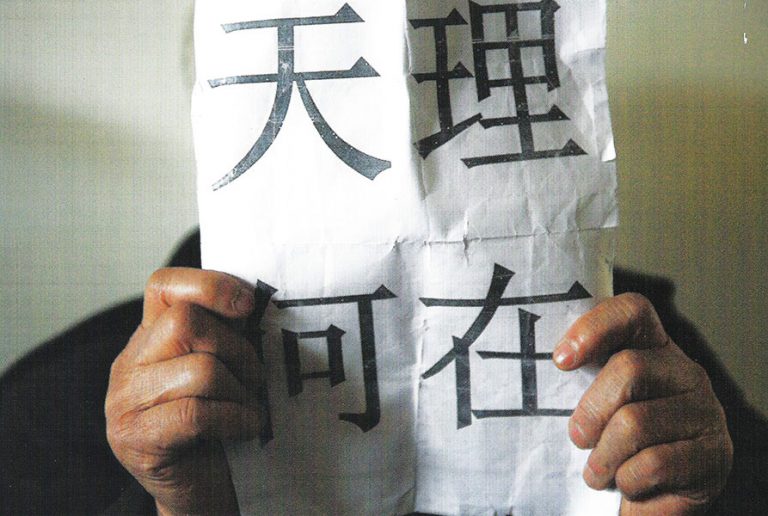 天理
何在